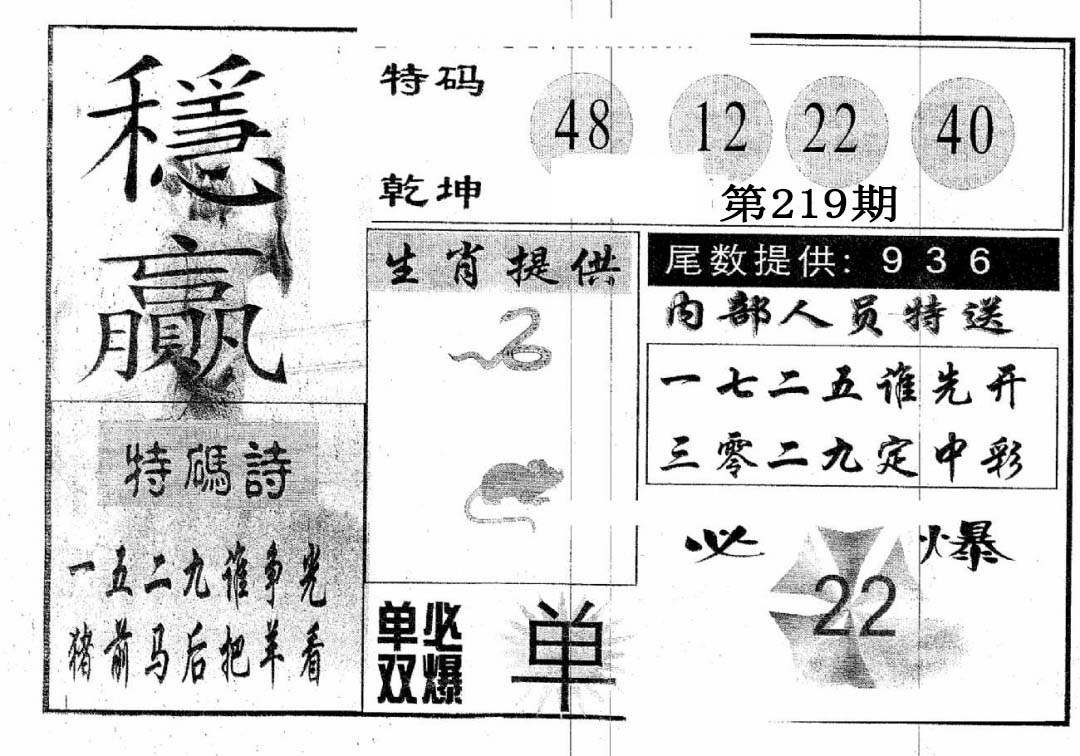 穩
贏
特码
乾坤
48 12 22 40
第219期
生肖提供
尾数提供: 9 3 6
内部人员特送
一七二五谁先开
三零二九定中彩
特碼詩
一五二九谁争光
猪前马后把羊看
单双
必爆
单
必爆
22